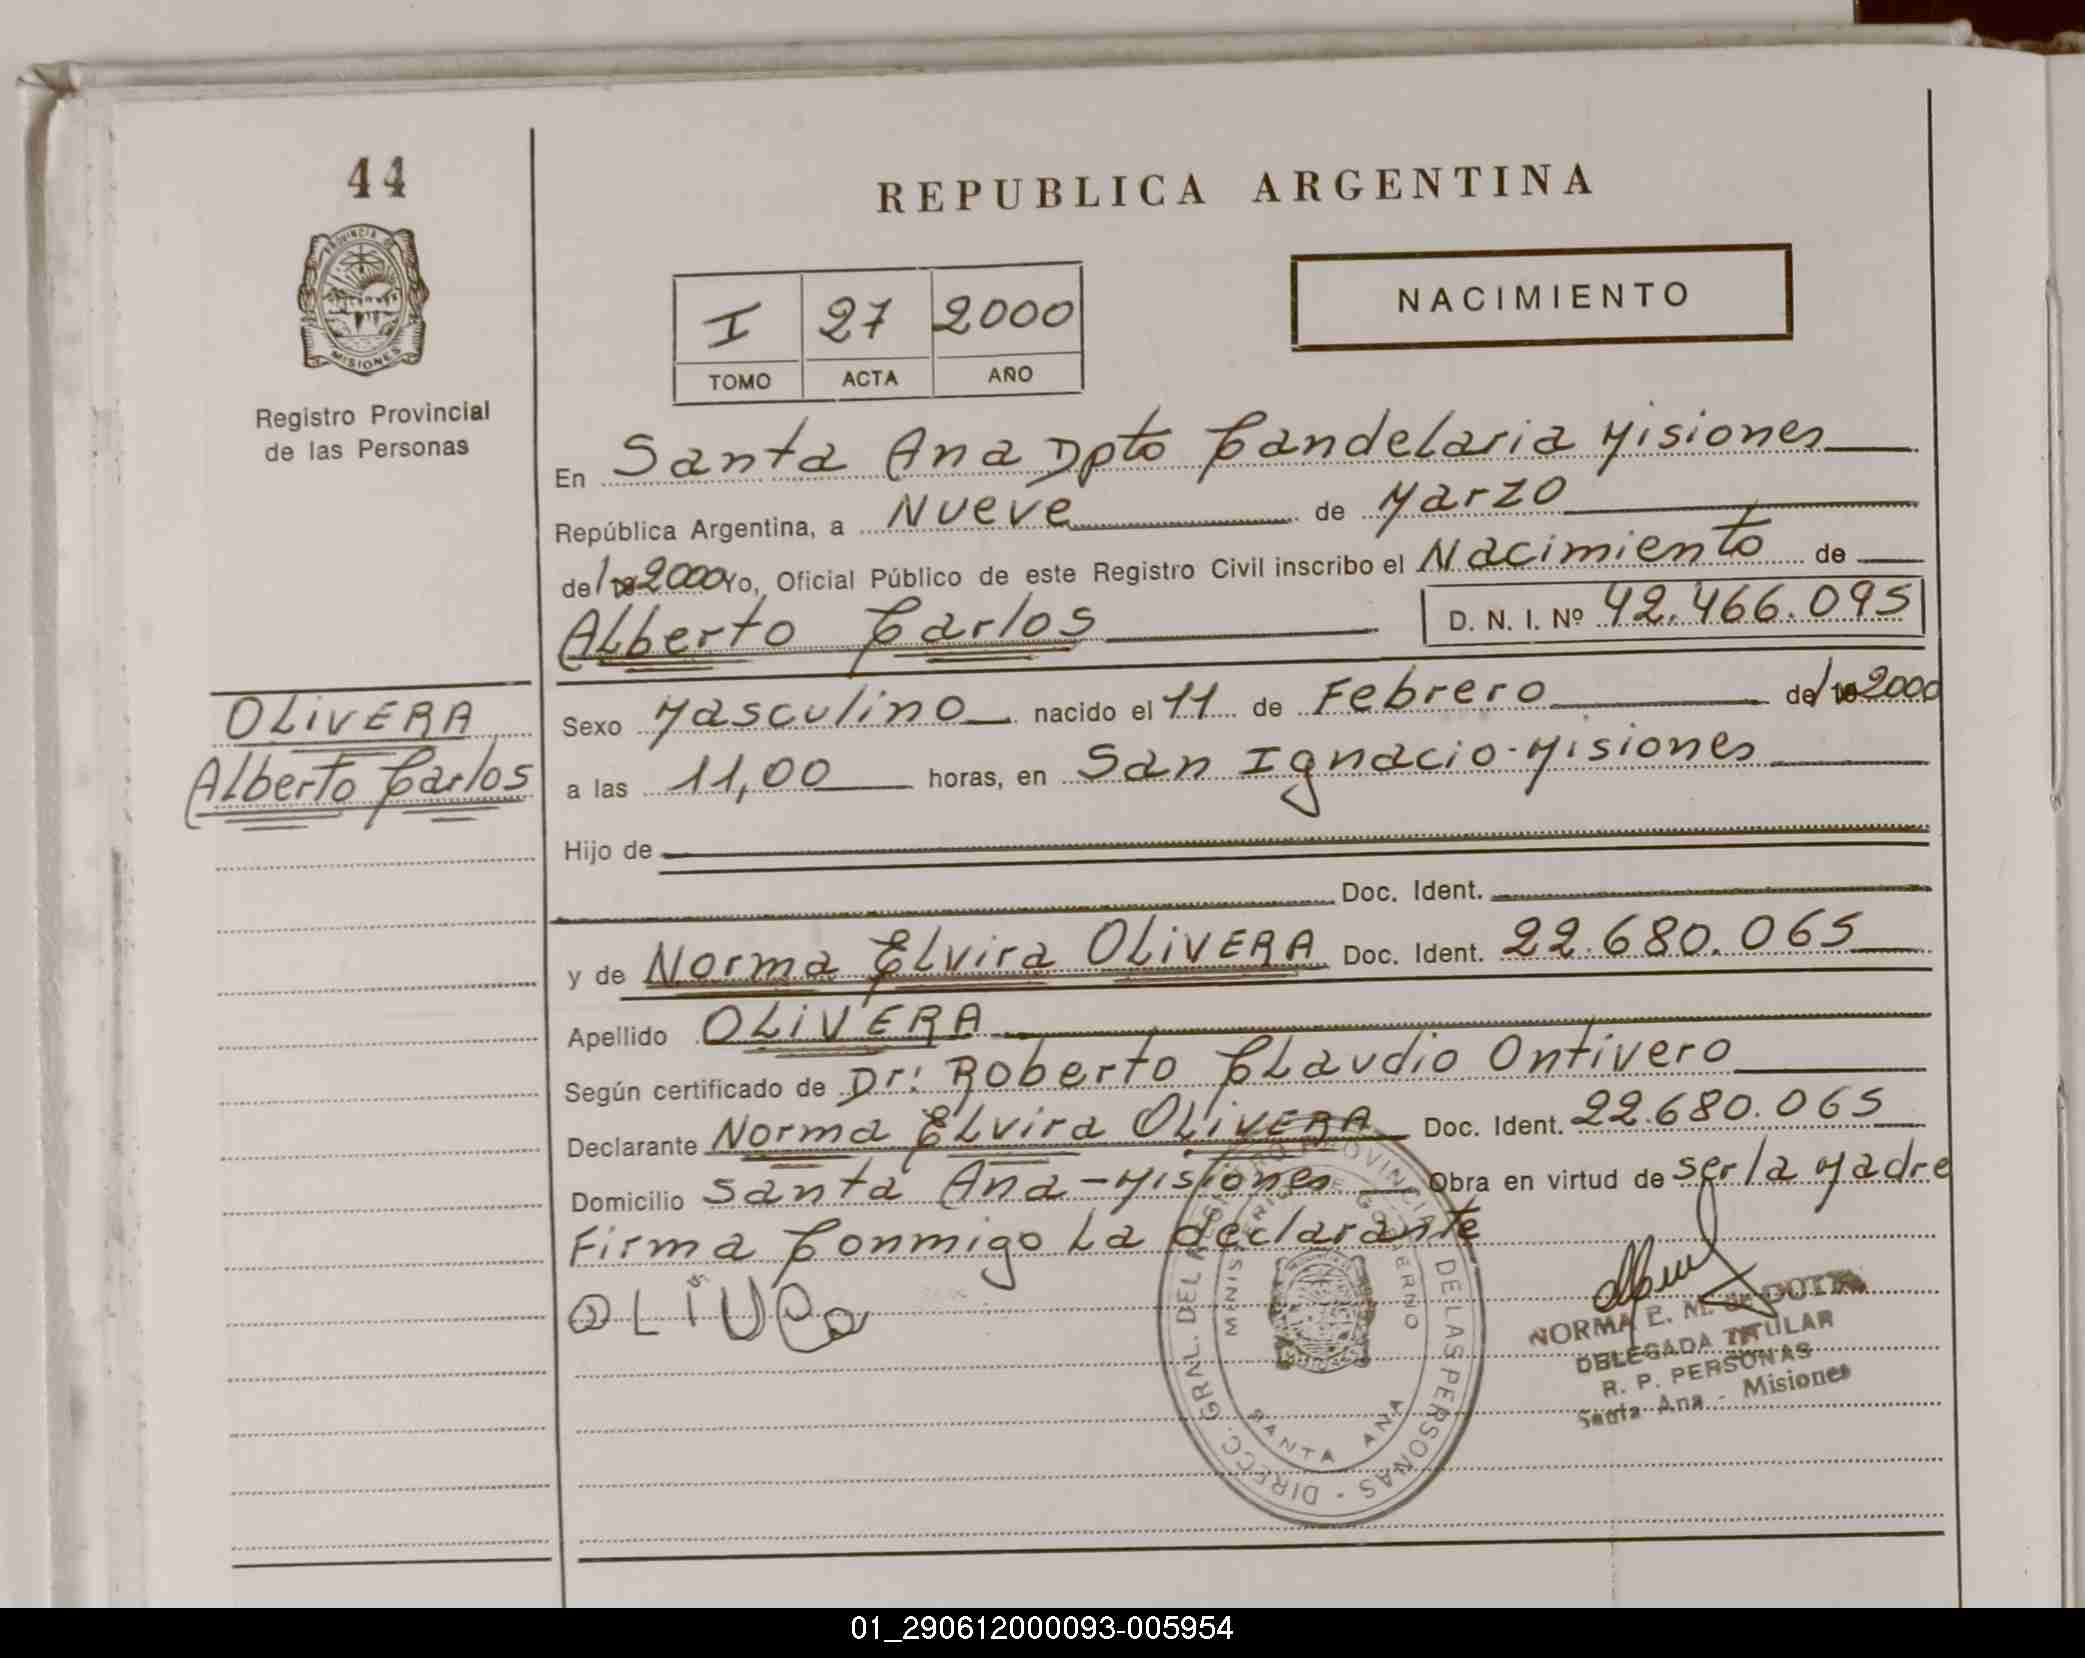 44
REPUBLICA ARGENTINA
PROVINCIA DE
MISIONES
NACIMIENTO
I 27 2000
TOMO ACTA AÑO
Registro Provincial
de las Personas
En Santa Ana Dpto Candelaria Misiones
República Argentina, a Nueve de Marzo
del 2000 Yo, Oficial Público de este Registro Civil inscribo el Nacimiento de
Alberto Carlos D. N. I. Nº 42.466.095
OLIVERA
Alberto Carlos
Sexo Masculino nacido el 11 de Febrero del 2000
a las 11,00 horas, en San Ignacio-Misiones
Hijo de
Doc. Ident.
y de Norma Elvira OLIVERA Doc. Ident. 22.680.065
Apellido OLIVERA
Según certificado de Dr: Roberto Claudio Ontivero
Declarante Norma Elvira OLIVERA Doc. Ident. 22.680.065
Domicilio Santa Ana-Misiones Obra en virtud de ser la Madre
Firma Conmigo La declarante
DIRECC. GRAL. DEL REGISTRO PROVINCIAL DE LAS PERSONAS
MINISTERIO DE GOBIERNO
SANTA ANA
NORMA E. M. de
DELEGADA TITULAR
R. P. PERSONAS
Santa Ana - Misiones
01_290612000093-005954